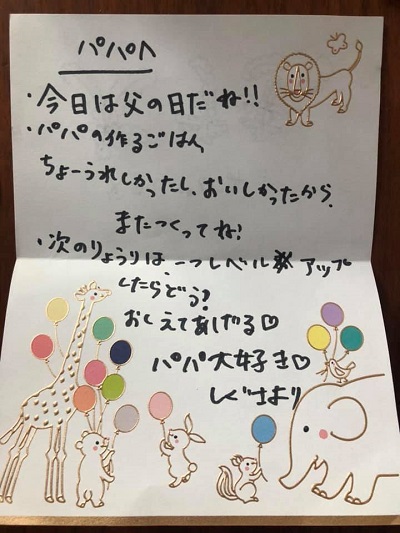 パパへ
・今日は父の日だね!!
・パパの作るごはん
ちょーうれしかったし、おいしかったから、
またつくってね!
・次のりょうりは、一つレベルアップ
したらどう?
おしえてあげる♡
パパ大好き♡
しぐさより